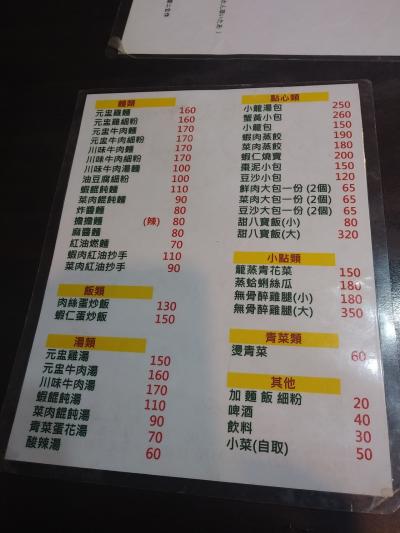 麵類
元盅雞麵 160
元盅雞細粉 160
元盅牛肉麵 170
元盅牛肉細粉 170
川味牛肉麵 170
川味牛肉湯麵 100
油豆腐細粉 100
蝦餛飩麵 110
菜肉餛飩麵 90
炸醬麵 80
擔擔麵 (辣) 80
麻醬麵 80
紅油燃麵 70
蝦肉紅油抄手 110
菜肉紅油抄手 90
飯類
肉絲蛋炒飯 130
蝦仁蛋炒飯 150
湯類
元盅雞湯 150
元盅牛肉湯 160
川味牛肉湯 170
蝦餛飩湯 110
菜肉餛飩湯 90
青菜蛋花湯 70
酸辣湯 60
點心類
小籠湯包 250
蟹黃小包 260
小籠包 150
蝦肉蒸餃 190
菜肉蒸餃 180
蝦仁燒賣 200
棗泥小包 150
豆沙小包 120
鮮肉大包一份(2個) 65
菜肉大包一份(2個) 65
豆沙大包一份(2個) 65
甜八寶飯(小) 80
甜八寶飯(大) 320
小點類
龍蒸青花菜 150
蒸蛤蜊絲瓜 180
無骨醉雞腿(小) 180
無骨醉雞腿(大) 350
青菜類
燙青菜 60
其他
加麵飯細粉 20
啤酒 40
飲料 30
小菜(自取) 50